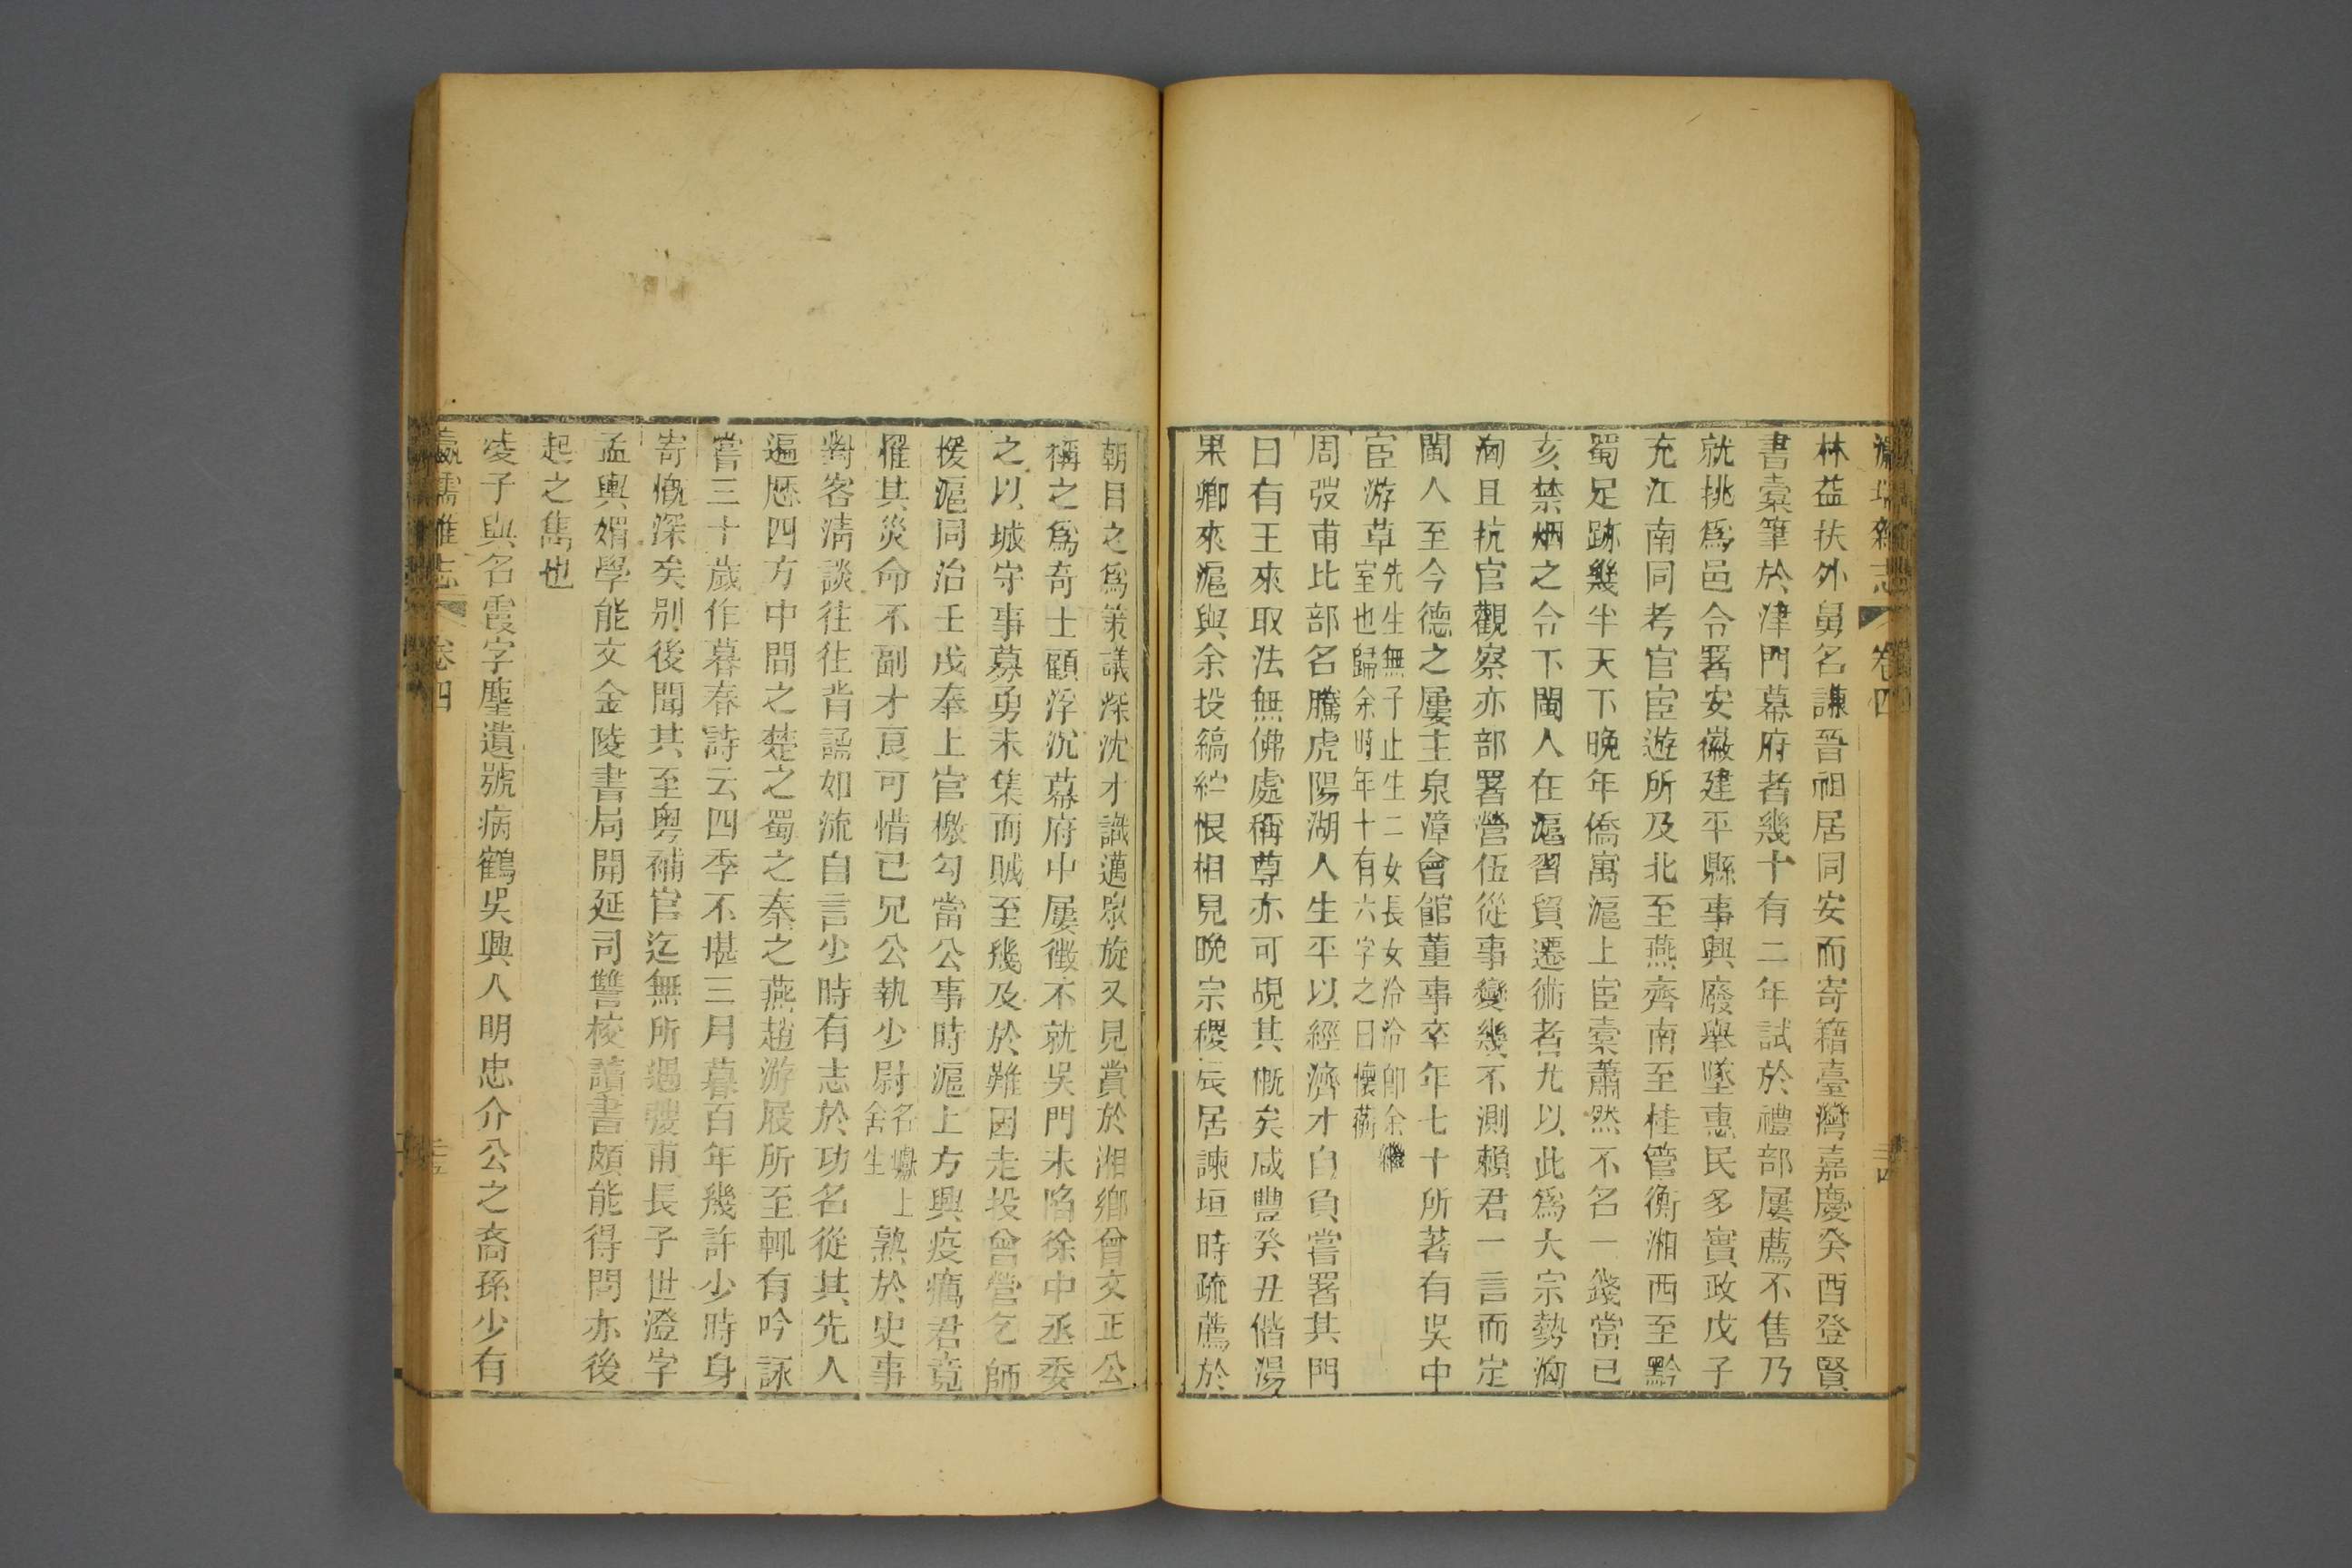 瀛壖雜志 卷四 三四
林益扶外舅名謙晉祖居同安而寄籍臺灣嘉慶癸酉登賢
書橐筆於津門幕府者幾十有二年試於禮部屢薦不售乃
就挑爲邑令署安徽建平縣事興廢舉墜惠民多實政戊子
充江南同考官宦遊所及北至燕齊南至桂管衡湘西至黔
蜀足跡幾半天下晚年僑寓滬上宦橐蕭然不名一錢當已
亥禁烟之令下閩人在滬習貿遷術者尤以此爲大宗勢洶
洶且抗官觀察亦部署營伍從事變幾不測賴君一言而定
閩人至今德之屢主泉漳會館董事卒年七十所著有吳中
宦游草先生無子止生二女長女泠泠卽余繼
室也歸余時年十有六字之曰懷蘅
周弢甫比部名騰虎陽湖人生平以經濟才自負嘗署其門
曰有王來取法無佛處稱尊亦可覘其槪矣咸豐癸丑偕湯
果卿來滬與余投縞紵恨相見晚宗稷辰居諫垣時疏薦於
朝目之爲策議深沈才識邁眾旋又見賞於湘鄉曾文正公
稱之爲奇士顧浮沉幕府中屢徵不就吳門未陷徐中丞委
之以城守事募勇未集而賊至幾及於難因走投曾營乞師
援滬同治壬戌奉上官檄勾當公事時滬上方興疫癘君竟
罹其災命不副才良可惜已兄公執少尉名爔上
舍生熟於史事
對客淸談往往背誦如流自言少時有志於功名從其先人
遍歷四方中間之楚之蜀之秦之燕趙游屐所至輒有吟詠
嘗三十歲作暮春詩云四季不堪三月暮百年幾許少時身
寄慨深矣別後聞其至粵補官迄無所遇弢甫長子世澄字
孟輿媚學能文金陵書局開延司讐校讀書頗能得間亦後
起之雋也
凌子與名霞字塵遺號病鶴吳興人明忠介公之裔孫少有
瀛壖雜志 卷四 三五